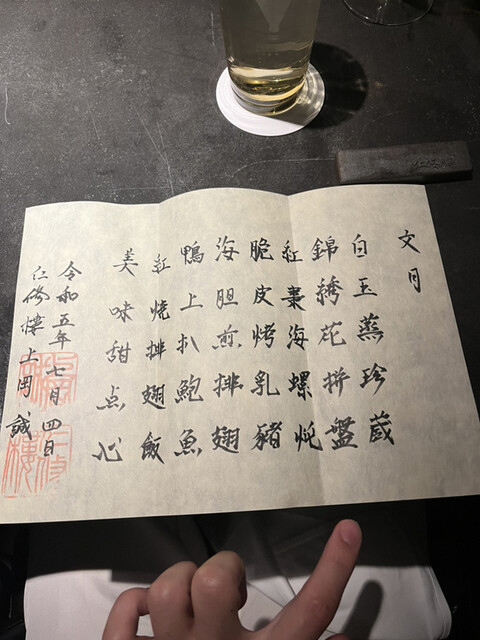 文月
白玉蒸珍蔵
錦綉花拼盤
紅棗海螺炖
脆皮烤乳豬
海胆煎排翅
鴨上扒鮑魚
紅焼排翅飯
美味甜点心
令和五年七月四日
仁修樓上岡誠